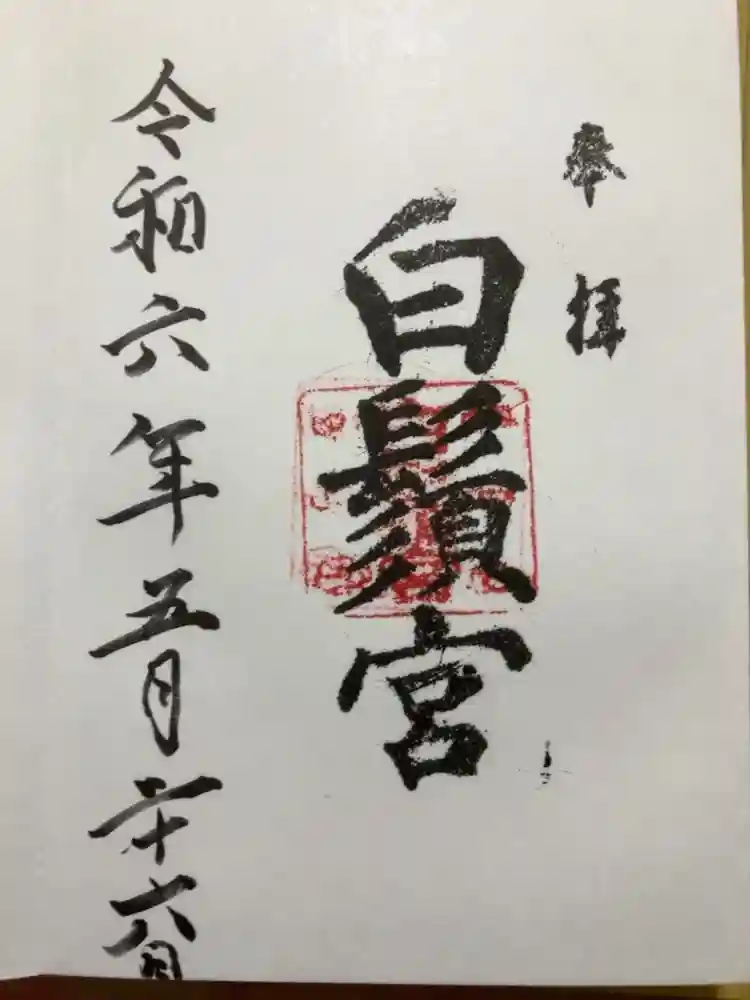 奉拝
白鬚宮
令和六年五月二十六日